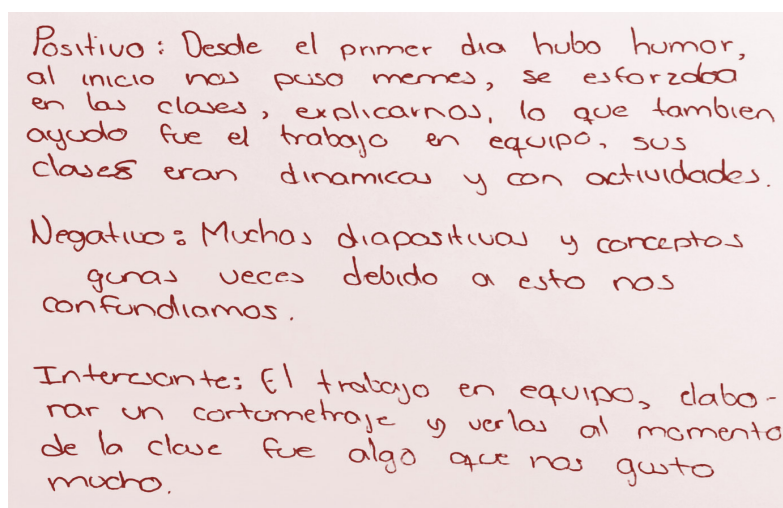 Positivo: Desde el primer dia hubo humor,
al inicio nos puso memes, se esforzaba
en las clases, explicarnos, lo que tambien
ayudo fue el trabajo en equipo, sus
clases eran dinamicas y con actividades.
Negativo: Muchas diapositivas y conceptos
gunas veces debido a esto nos
confundiamos.
Interesante: El trabajo en equipo, elabo-
rar un cortometraje y verlas al momento
de la clase fue algo que nos gusto
mucho.